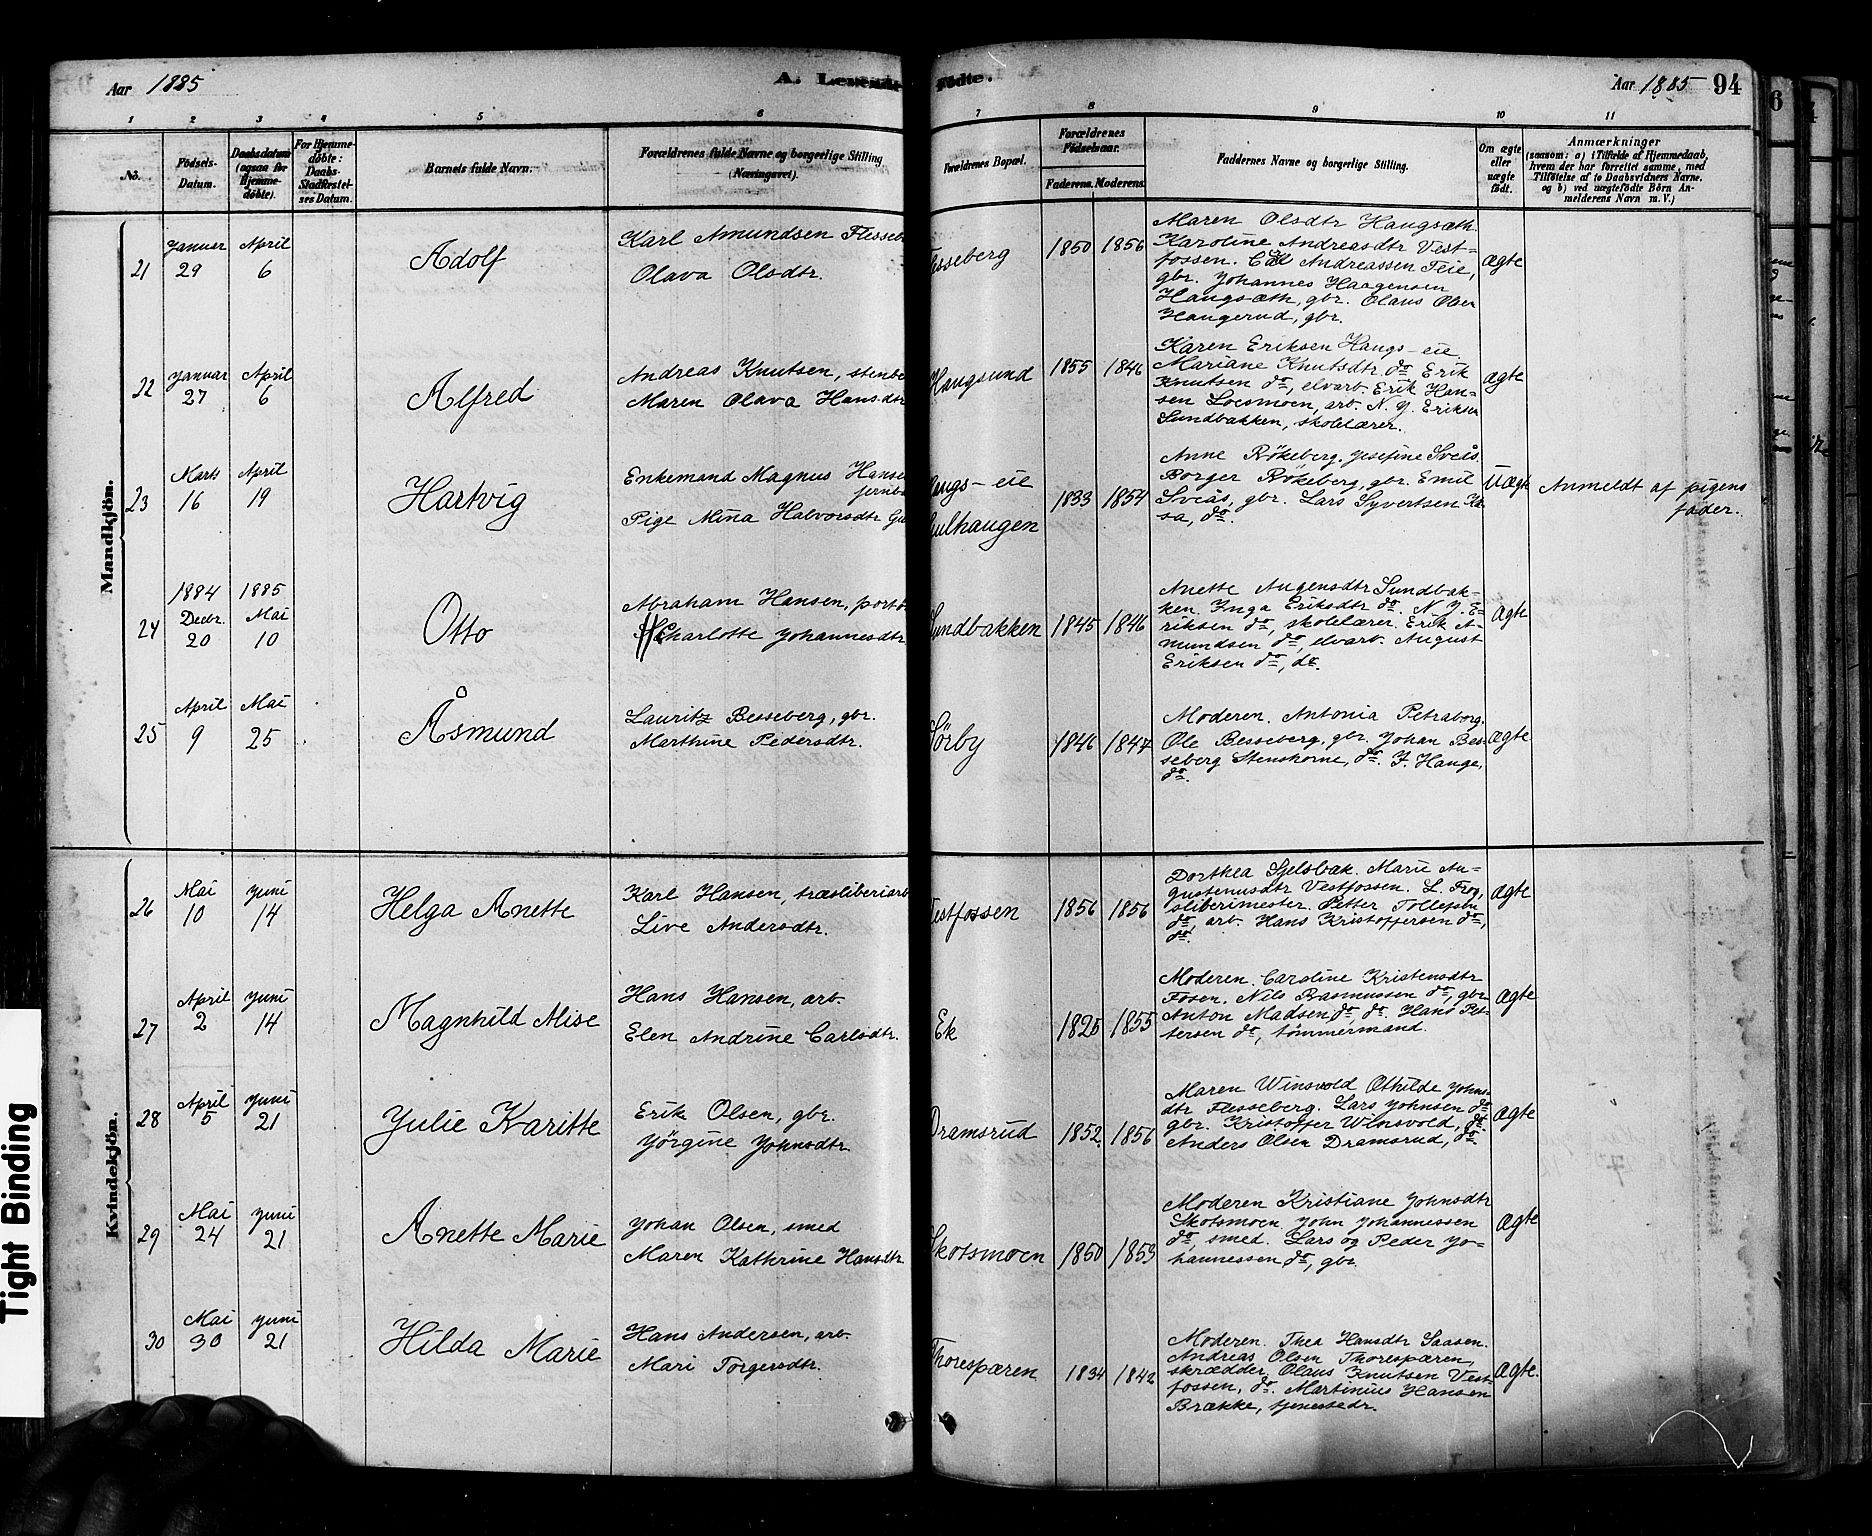 Aar 1885
A. Levende
Fødte.
Aar 1885 94
1 2 3 4 5 6 7 8 9 10 11
No.
Fødsels-
Datum.
Daabsdatum
(ogsaa for
Hjemme-
døbte).
For Hjemme-
døbte:
Daabs-
Stadfæstel-
ses Datum.
Barnets fulde Navn.
Forældrenes fulde Navne og borgerlige Stilling
(Næringsvei).
Forældrenes Bopæl.
Forældrenes
Fødselsaar.
Faderens. Moderens.
Faddernes Navne og borgerlige Stilling.
Om ægte
eller
uægte
født.
Anmærkninger
(saasom: a) i Tilfælde af Hjemmedaab,
hvem der har forrettet samme, med
Tilføielse af to Daabsvidners Navne.
og b) ved uægtefødte Børn An-
melderens Navn m. V.)
Mandkjön.
21
Januar
29
April
6
Adolf
Karl Amundsen Flesseb
Olava Olsdtr.
esseberg
1850 1856
Maren Olsdtr Haugsæth
Karoline Andreasdtr Vest-
fossen. Carl Andreassen Teie,
gbr. Johannes Haagensen
Haugsæth, gbr. Olaus Olsen
Haugerud, gbr.
Ægte
22
Januar
27
April
6
Alfred
Andreas Knutsen, stenb
Maren Olava Hansdtr
Haugsund
1855 1846
Karen Eriksen Haugs-eie.
Mariane Knutsdtr do Erik
Knutsen do, elvarb. Erik Han-
sen Loesmoen, arb. N. J. Eriksen
Sundbakken, skolelærer.
Ægte
23
Marts
16
April
19
Hartvig
Enkemand Magnus Hanse
jernb
Pige Mina Halvorsdtr Gu
augs-eie
ulhaugen
1833 1854
Anne Rökeberg, Josefine Sveås
Borger Rökeberg, gbr. Emil
Sveås, gbr. Lars Syvertsen Ka
sa, do.
Uægte
Anmeldt af pigens
fader.
24
1884
Decbr.
20
1885
Mai
10
Otto
Abraham Hansen, port
Charlotte Johannesdtr
Sundbakken
1845 1846
Anette Augensdtr Sundbak-
ken. Inga Eriksdtr do. N. J. E-
riksen do, skolelærer. Erik A-
mundsen do, elvarb. August
Eriksen do, do.
Ægte
25
April
9
Mai
25
Åsmund
Lauritz Besseberg, gbr.
Marthine Pedersdtr.
Sörby
1846 1847
Moderen. Antonia Petraborg.
Ole Besseberg, gbr. Johan Bes-
seberg Stenshorne, do. F. Hauge,
do.
Ægte
Kvindekjön.
26
Mai
10
Juni
14
Helga Anette
Karl Hansen, træsliberiarb
Live Andersdtr.
Vestfossen
1856 1856
Dorthea Sjelsbæk. Marie Au-
gustenusdtr Vestfossen. L. Frog,
sliberimester. Petter Tollefsen
do, arb. Hans Kristoffersen do,
do.
Ægte
27
April
2
Juni
14
Magnhild Alise
Hans Hansen, arb.
Elen Andrine Carlsdtr.
Ek
1825 1855
Moderen. Caroline Kristensdtr
Fosen. Nils Rasmussen do, gbr
Anton Madsen do, do. Hans Pet-
tersen do, tömmermand.
Ægte
28
April
5
Juni
21
Julie Karitte
Erik Olsen, gbr.
Jörgine Johnsdtr.
Dramsrud
1852. 1856
Maren Winsvold Othilde Johns-
dtr Flesseberg. Lars Johnsen do
gbr. Kristoffer Winsvold, do.
Anders Olsen Dramsrud, do
Ægte
29
Mai
24
Juni
21
Anette Marie
Johan Olsen, smed
Maren Kathrine Hansdtr.
Skotsmoen
1850 1853
Moderen Kristiane Johnsdtr
Skotsmoen. John Johannessen
do, smed. Lars og Peder Jo-
hannessen do, gbr.
Ægte
30
Mai
30
Juni
21
Hilda Marie
Hans Andersen, arb.
Mari Torgersdtr.
Thorespæren
1834 1842
Moderen. Thea Hansdtr Saasen.
Andreas Olsen Thorespæren,
skrædder. Olaus Knutsen Vest-
fossen, do. Martinius Hansen
Brække, tjenestedr.
Ægte.
Tight Binding